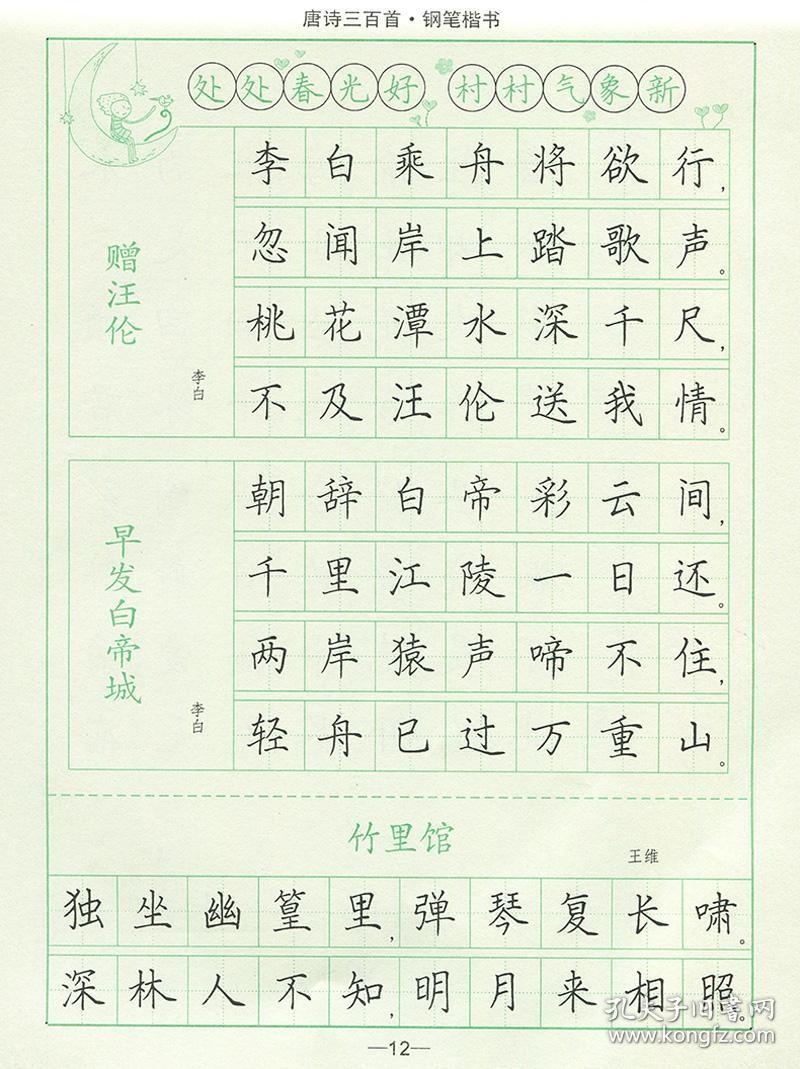 唐诗三百首·钢笔楷书
处处春光好 村村气象新
赠汪伦
李白
李白乘舟将欲行，
忽闻岸上踏歌声。
桃花潭水深千尺，
不及汪伦送我情。
早发白帝城
李白
朝辞白帝彩云间，
千里江陵一日还。
两岸猿声啼不住，
轻舟已过万重山。
竹里馆
王维
独坐幽篁里，弹琴复长啸。
深林人不知，明月来相照。
孔夫子旧書网
www.kongfz.com
—12—